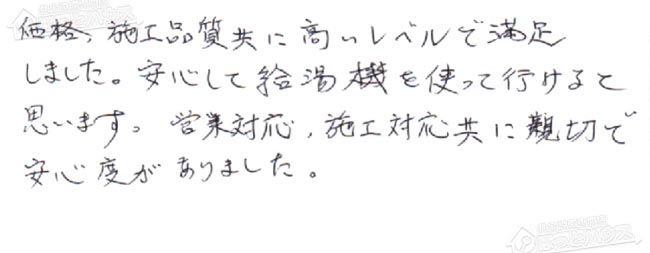 価格、施工品質共に高いレベルで満足
しました。安心して給湯機を使って行けると
思います。営業対応、施工対応共に親切で
安心度がありました。